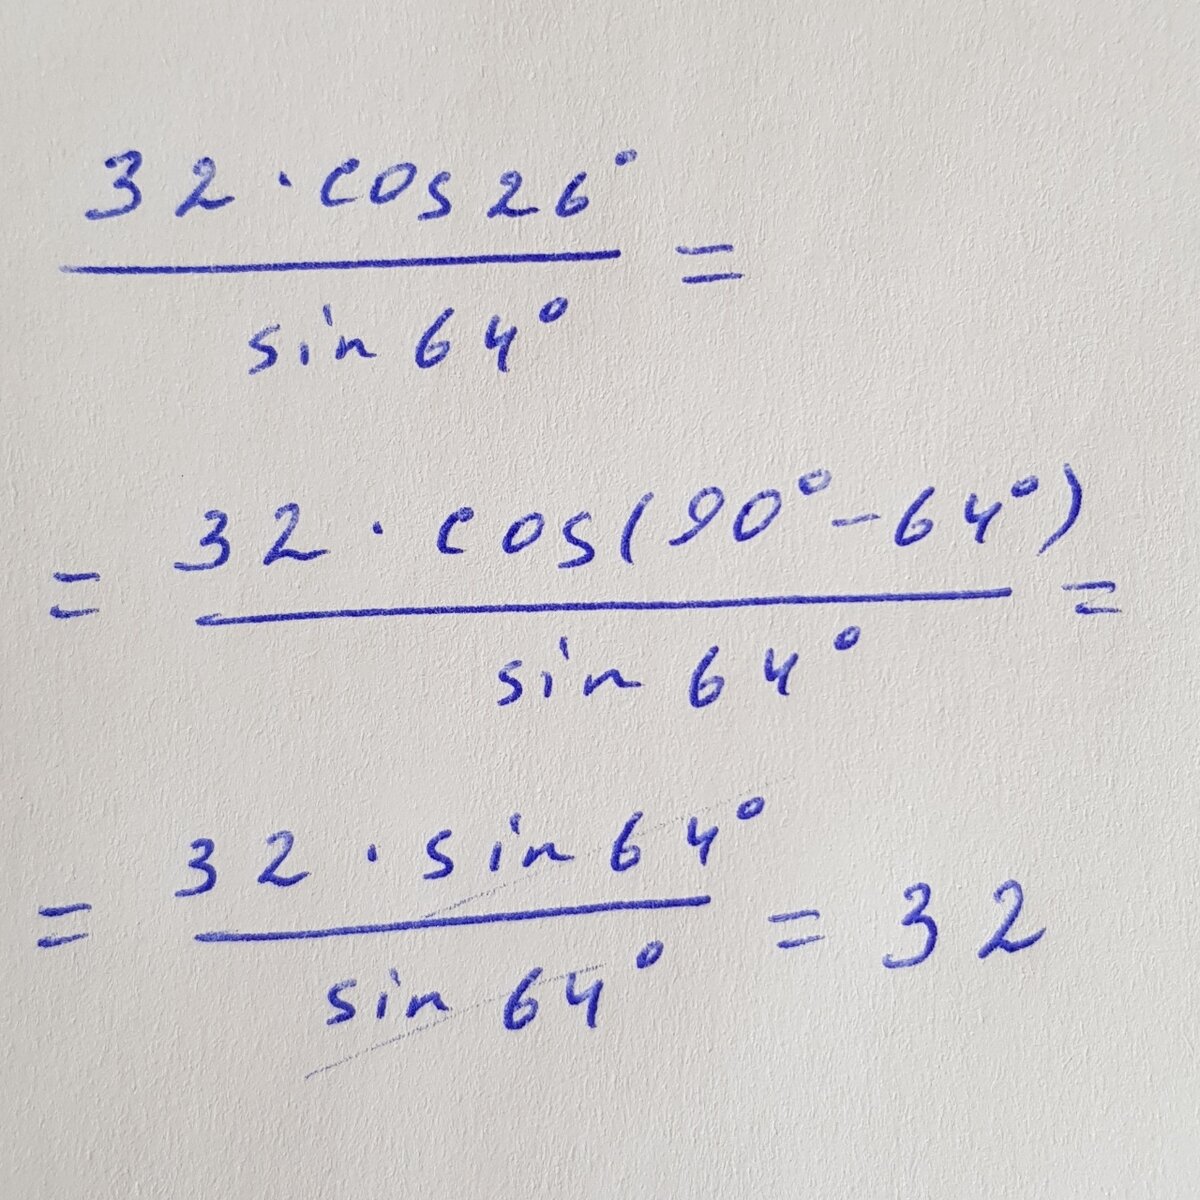 32 · cos26°
=
sin 64°
= 32 · cos(90° - 64°) =
sin 64°
= 32 · sin 64° = 32
sin 64°